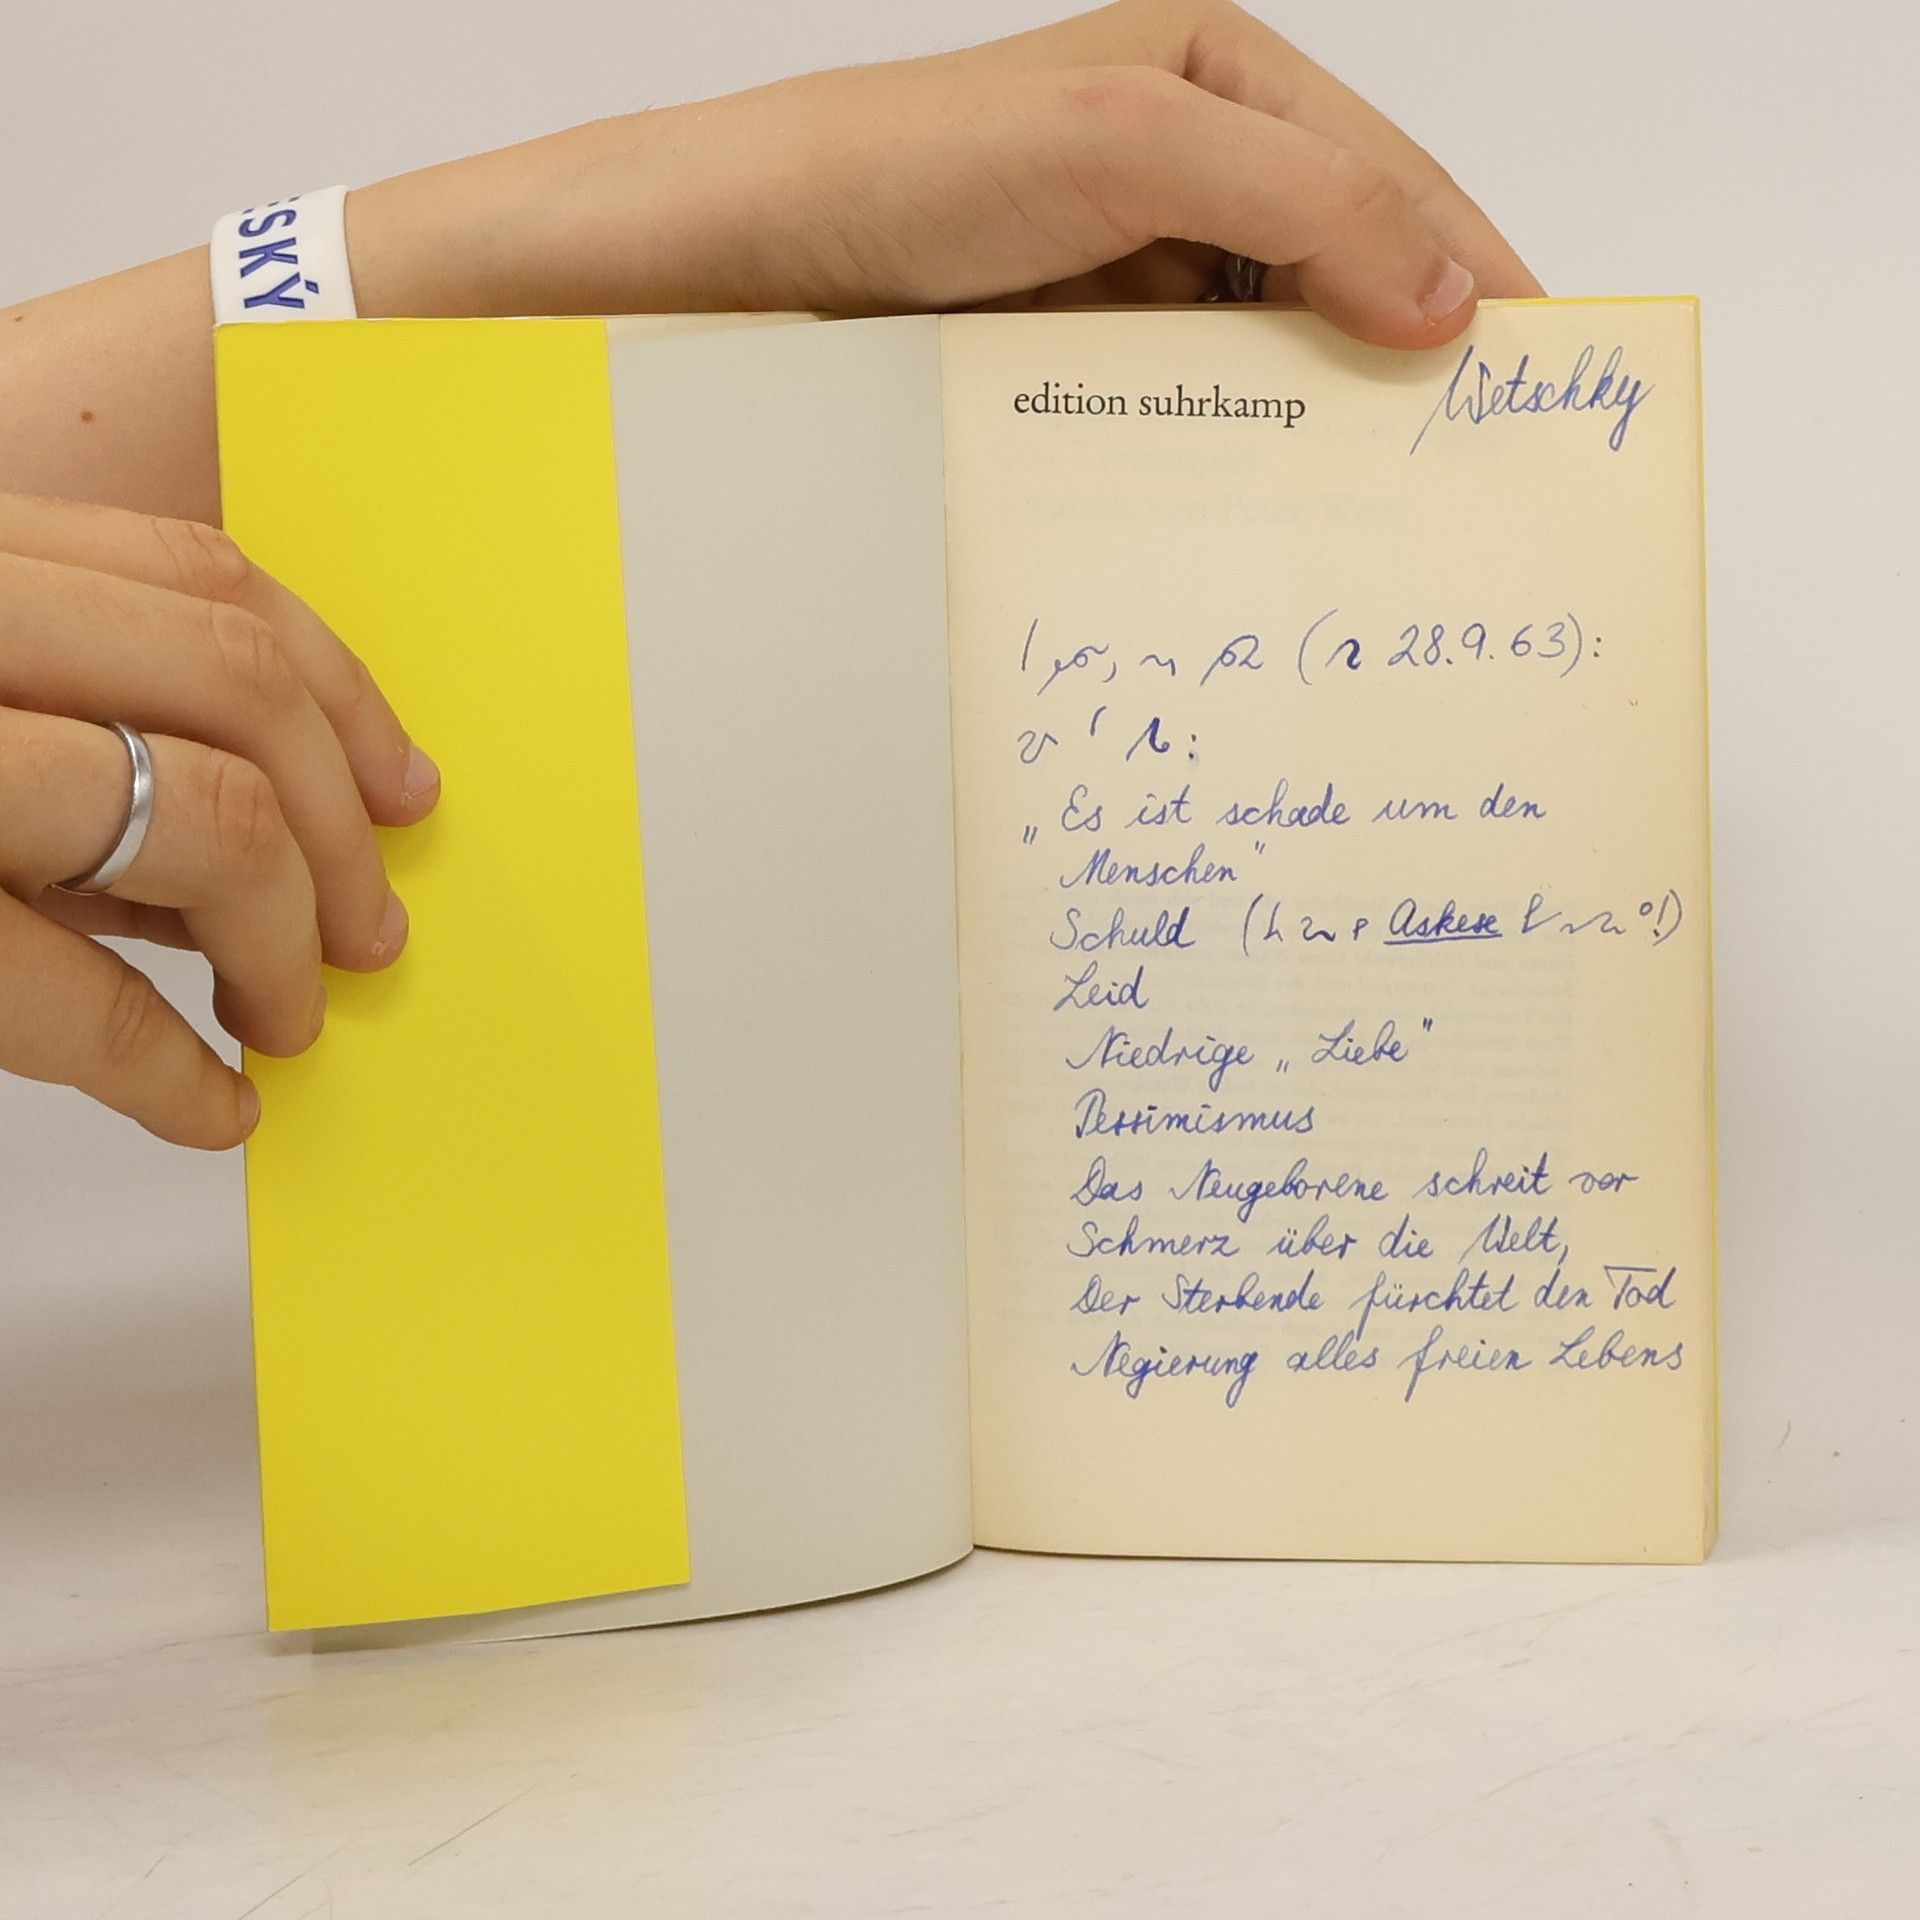 ESKÝ
edition suhrkamp
Wetschky
(28.9.63):
„Es ist schade um den
Menschen"
Schuld (Askese !)
Leid
Niedrige „Liebe"
Pessimismus
Das Neugeborene schreit vor
Schmerz über die Welt,
Der Sterbende fürchtet den Tod
Negierung alles freien Lebens